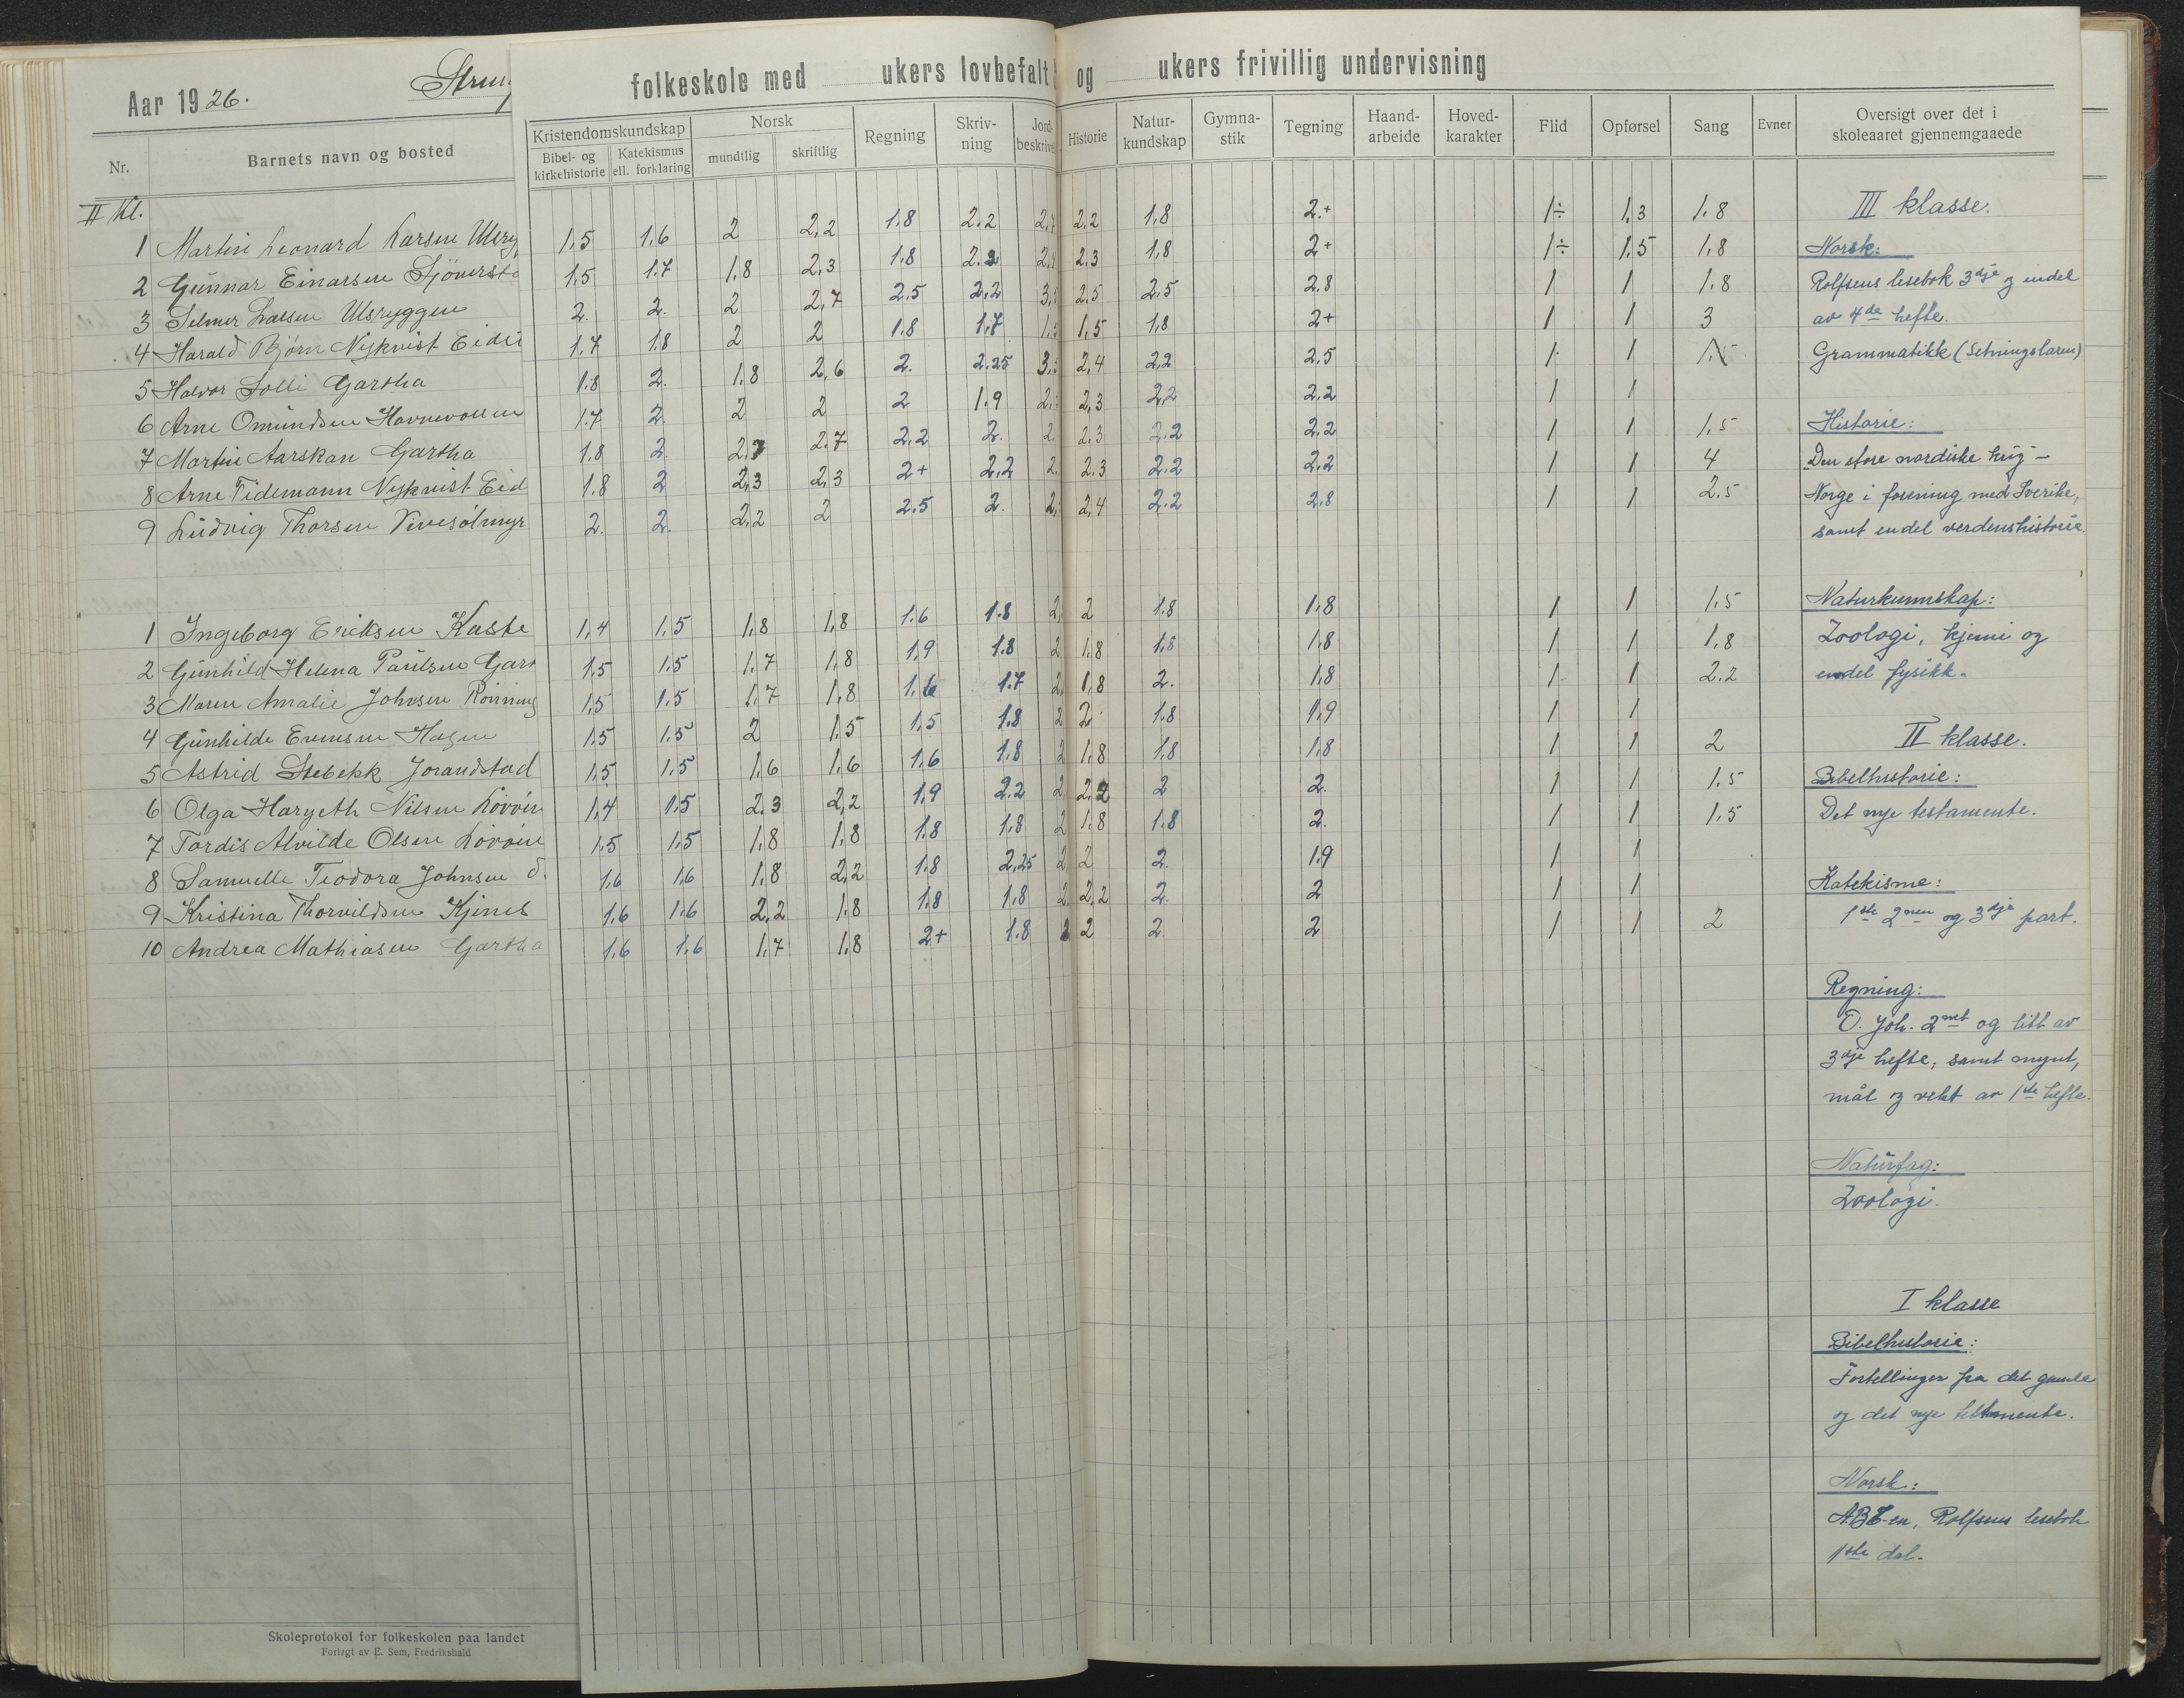 Aar 1926.
folkeskole med ukers lovbefalt og ukers frivillig undervisning
Nr. Barnets navn og bosted Kristendomskundskap Bibel- og kirkehistorie Katekismus ell. forklaring Norsk mundtlig skriftlig Regning Skriv-ning Jord-beskrive Historie Natur-kundskap Gymna-stik Tegning Haand-arbeide Hoved-karakter Flid Opførsel Sang Evner Oversigt over det i skoleaaret gjennemgaaede
II kl.
1 Martin Leonard Larsen 1,5 1,6 2 2,2 1.8 2.2 2.2 1,8 2.+ 1÷ 1,3 1.8
2 Gunnar Einarsen 1,5 1.7 1.8 2.3 1.8 2.3 1,8 2+ 1÷ 1.5 1.8
3 Selmer Larsen Ulsryggen 2. 2. 2 2,7 2.5 2,2 2.5 2.5 2.8 1 1 1.8
4 Harald Bjørn Nykvist 1.7 1.8 2 2 1.8 1.7 1,5 1,8 2+ 1 1 3
5 Halvor Solli Gartha 1.8 2. 1.8 2,6 2. 2.25 2,4 2,2 2,5 1 1
6 Arne Omundsen 1.7 2. 2 2 2 1.9 2,3 2,2 2.2 1 1
7 Martin Aarskan Gartha 1.8 2. 2.7 2.2 2. 2.3 2.2 2.2 1 1 1,5
8 Arne Tidemann Nykvist Eid 1.8 2 2,3 2,3 2+ 2,2 2.3 2.2 2,2 1 1 4
9 Ludvig Thorsen 2. 2. 2,2 2 2.5 2. 2,4 2.2 2.8 1 1 2.5
1 Ingeborg Eriksen Kaste 1,4 1,5 1,8 1,8 1.6 1.8 2 1.8 1,8 1 1 1,5
2 Gunhild Helena Paulsen 1.5 1.5 1.7 1.8 1,9 1.8 1.8 1.8 1,8 1 1 1,8
3 Maren Amalie Johnsen 1,5 1.5 1.7 1,8 1.7 1,8 2. 1,8 1 1 2.2
4 Gunhilde Evensen Hagen 1.5 1.5 2 1.5 1,5 1.8 2 1.8 1,9 1 1
5 Astrid Stebekk Jorandstad 1.5 1.5 1,6 1.6 1,6 1.8 1.8 1,8 1.8 1 1 2
6 Olga Nilsen 1,4 1.5 2.3 2,2 1,9 2.2 2 2. 1 1 1.5
7 Tordis Alvilde Olsen 1.5 1,5 1,8 1.8 1.8 1.8 1.8 1.8 2. 1 1 1,5
8 Samuelle Teodora Johnsen 1.6 1.6 1.8 2,2 1.8 2,25 2 2. 1.9 1 1
9 Kristina Thorvildsen 1.6 1.6 2.2 1.8 1.8 1.8 2,2 2. 2 1 1
10 Andrea Mathiasen Gartha 1.6 1.6 1.7 1.8 2+ 1.8 2 2. 2 1 1 2
III klasse.
Norsk:
Rolfsens lesebok 3dje og endel
av 4de hefte.
Grammatikk (Setningslæren)
Historie:
Den store nordiske krig -
Norge i forening med Sverike,
samt endel verdenshistorie.
Naturkunnskap:
Zoologi, kjemi og
endel fysikk.
II klasse.
Bibelhistorie:
Det nye testamente.
Katekisme:
1ste 2nen og 3dje part.
Regning:
O. Joh. 2net og litt av
3dje hefte, samt mynt,
mål og vekt av 1ste hefte.
Naturfag:
Zoologi.
I klasse
Bibelhistorie:
Fortellinger fra det gamle
og det nye testamente.
Norsk:
ABC-en, Rolfsens lesebok
1ste del.
Skoleprotokol for folkeskolen paa landet
Forlagt av E. Sem, Fredrikshald